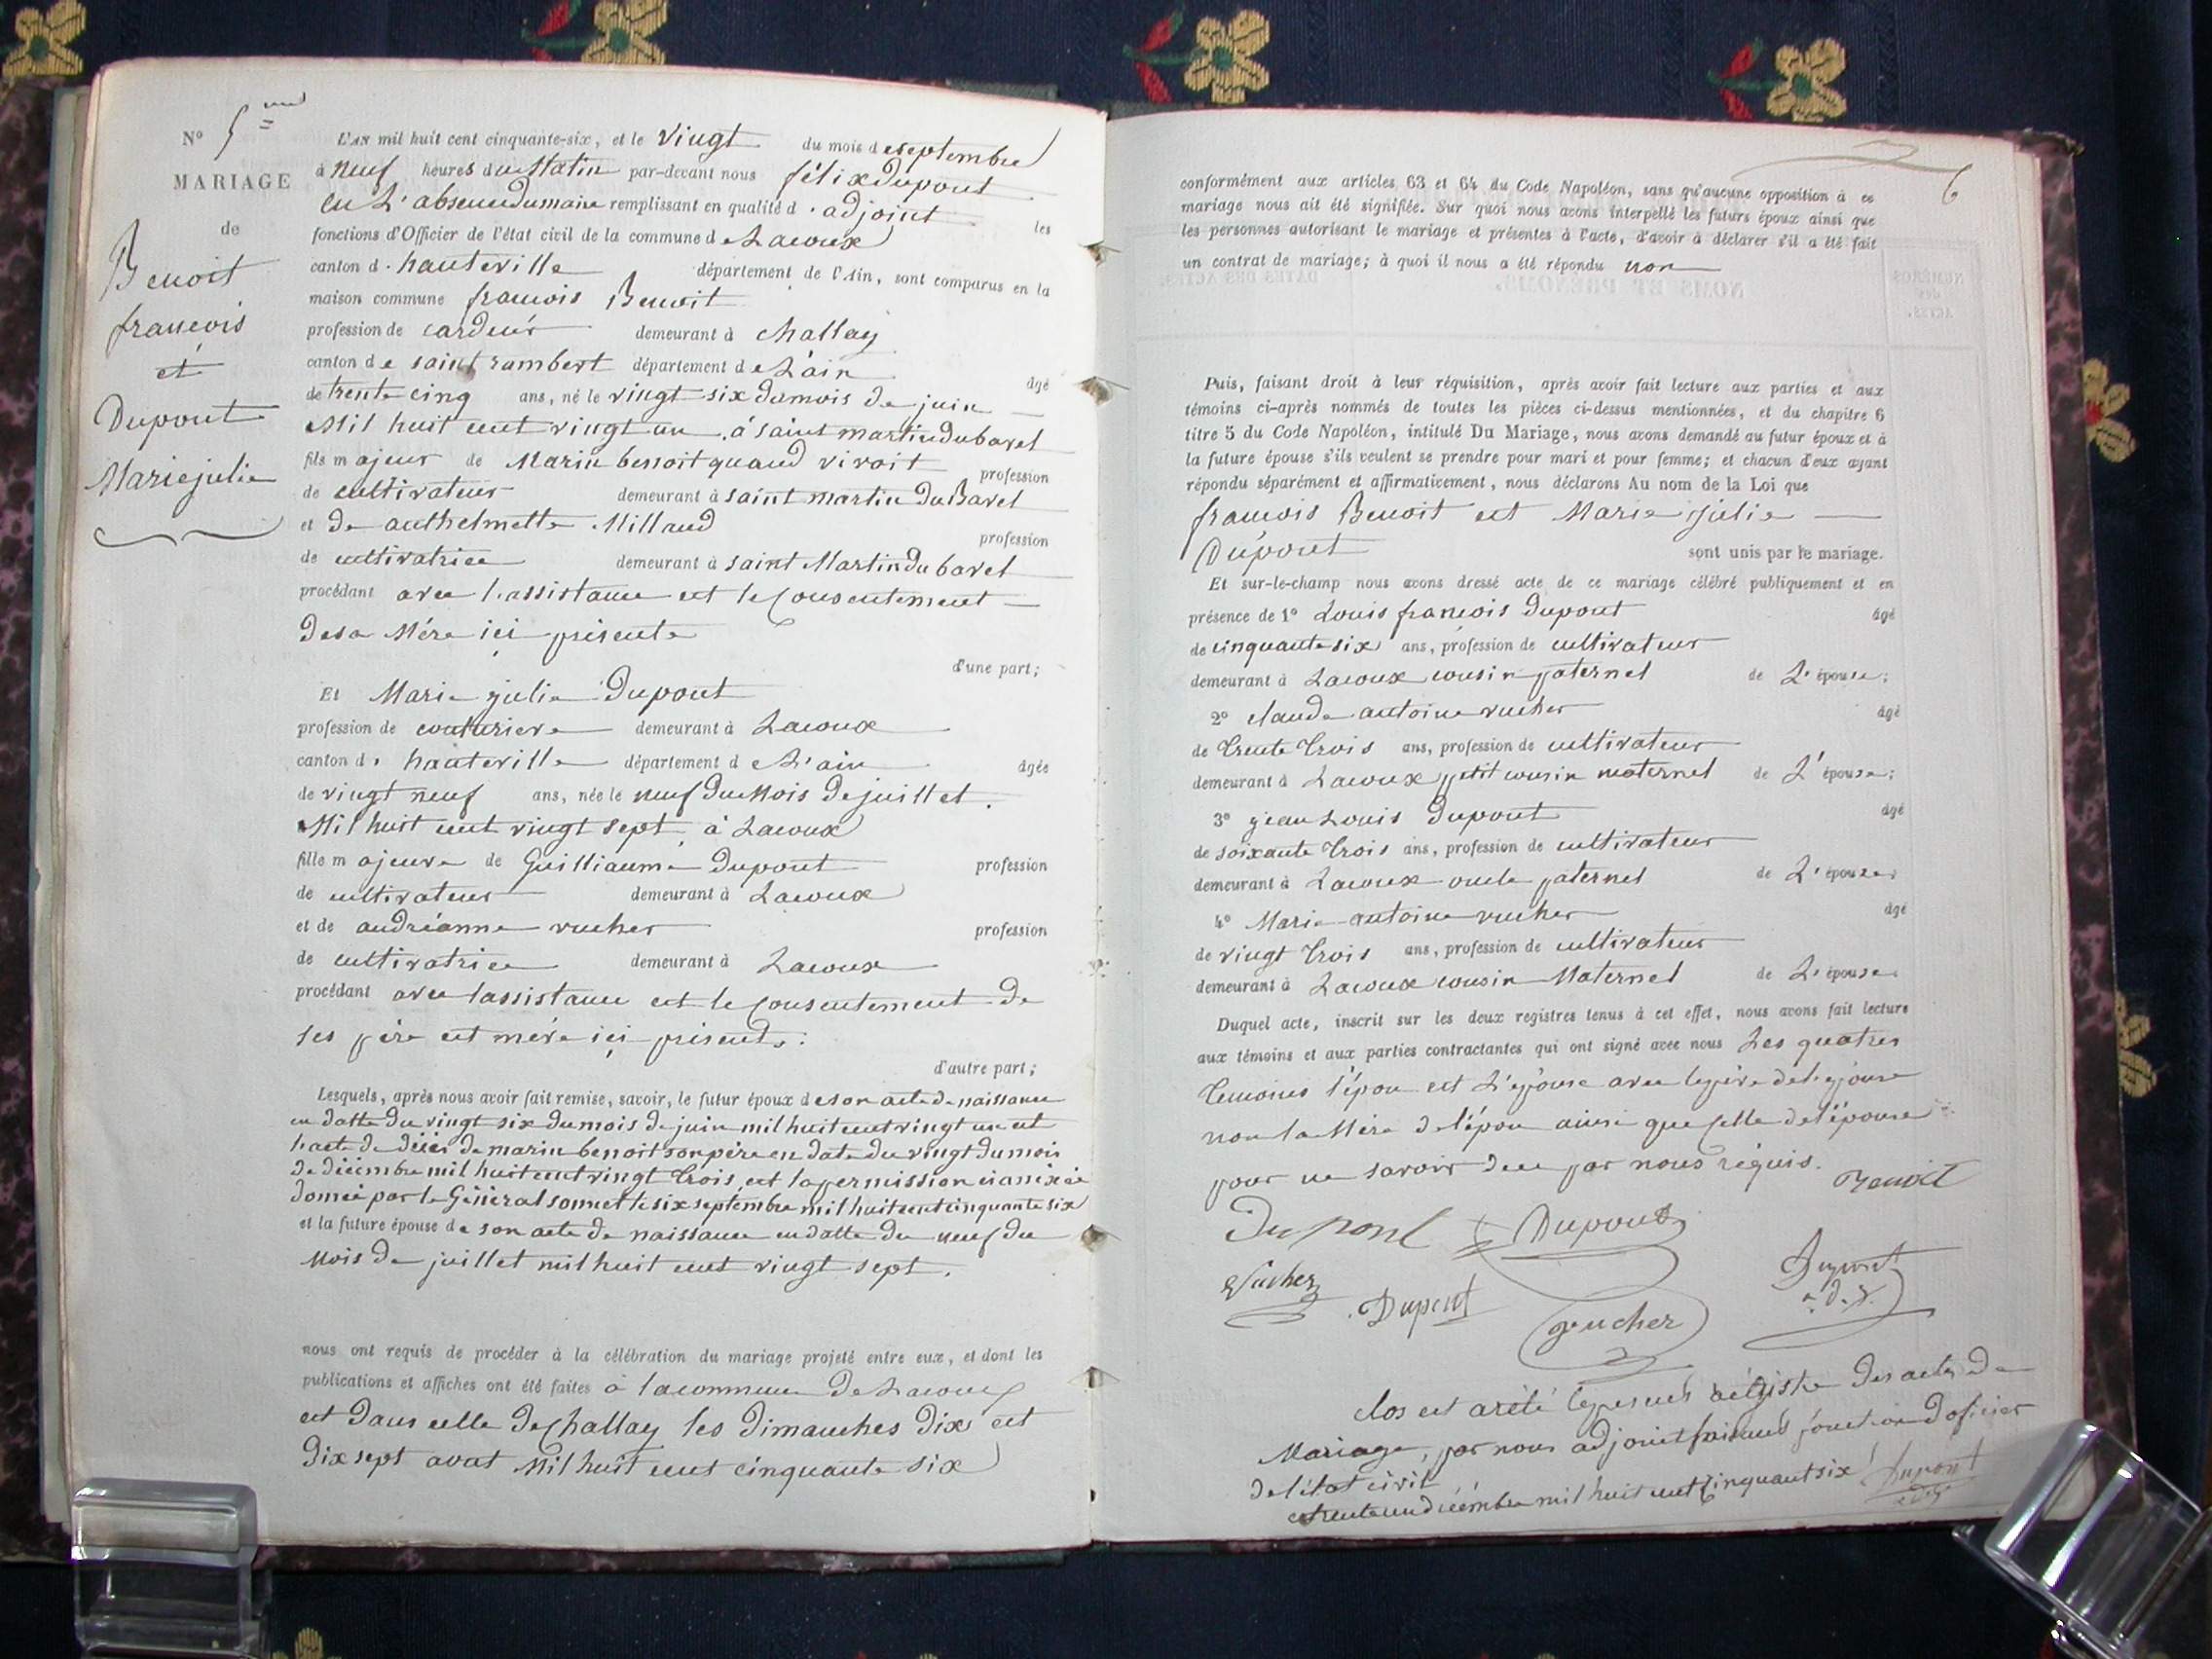 N° 5
MARIAGE
de
Benoit
françois
et
Dupont
Marie julie
L'AN mil huit cent cinquante-six, et le vingt du mois de septembre
à neuf heures du Matin par-devant nous félix dupont
en L'absence du maire remplissant en qualité d'adjoint les
fonctions d'Officier de l'état civil de la commune de Lacoux
canton d. hauteville département de l'Ain, sont comparus en la
maison commune francois Benoit
profession de cardeur demeurant à challey
canton de saint rambert département de L'ain âgé
de trente cinq ans, né le vingt six du mois de juin
Mil huit cent vingt un, à saint martin du bavel
fils majeur de Marin benoit quand vivoit profession
de cultivateur demeurant à saint martin du Bavel
et de anthelmette Millaud profession
de cultivatrice demeurant à saint Martin du bavel
procédant avec l'assistance et le consentement
de sa Mère ici présente
d'une part;
Et Marie julie Dupont
profession de couturiere demeurant à Lacoux
canton d. hauteville département de L'ain âgée
de vingt neuf ans, née le neuf du Mois de juillet
Mil huit cent vingt sept, à Lacoux
fille majeure de Guilliaume Dupont profession
de cultivateur demeurant à Lacoux
et de andréanne rucher profession
de cultivatrice demeurant à Lacoux
procédant avec lassistance et le consentement de
ses père et mère ici présents:
d'autre part;
Lesquels, après nous avoir fait remise, savoir, le futur époux de son acte de naissance
en datte du vingt six du mois de juin mil huit cent vingt un et
l'acte de décés de marin benoit son père en date du vingt du mois
de décembre mil huit cent vingt trois, et la permission
donnée par le Général le six septembre mil huit cent cinquante six
et la future épouse de son acte de naissance en datte du neuf du
Mois de juillet mil huit cent vingt sept.
nous ont requis de procéder à la célébration du mariage projeté entre eux, et dont les
publications et affiches ont été faites à la commune de Lacoux
et dans celle de challey les dimanches dix et
dix sept aout Mil huit cent cinquante six
6
conformément aux articles 63 et 64 du Code Napoléon, sans qu'aucune opposition à ce
mariage nous ait été signifiée. Sur quoi nous avons interpellé les futurs époux ainsi que
les personnes autorisant le mariage et présentes à l'acte, d'avoir à déclarer s'il a été fait
un contrat de mariage; à quoi il nous a été répondu non
Puis, faisant droit à leur réquisition, après avoir fait lecture aux parties et aux
témoins ci-après nommés de toutes les pièces ci-dessus mentionnées, et du chapitre 6
titre 5 du Code Napoléon, intitulé Du Mariage, nous avons demandé au futur époux et à
la future épouse s'ils veulent se prendre pour mari et pour femme; et chacun d'eux ayant
répondu séparément et affirmativement, nous déclarons Au nom de la Loi que
francois Benoit et Marie julie
Dupont sont unis par le mariage.
Et sur-le-champ nous avons dressé acte de ce mariage célébré publiquement et en
présence de 1° Louis françois Dupont âgé
de cinquante six ans, profession de cultivateur
demeurant à Lacoux cousin paternel de L'épouse;
2° claude antoine rucher âgé
de trente trois ans, profession de cultivateur
demeurant à Lacoux petit cousin maternel de L'épouse;
3° jean Louis Dupont âgé
de soixante trois ans, profession de cultivateur
demeurant à Lacoux oncle paternel de L'épouse
4° Marie antoine rucher âgé
de vingt trois ans, profession de cultivateur
demeurant à Lacoux cousin Maternel de L'épouse
Duquel acte, inscrit sur les deux registres tenus à cet effet, nous avons fait lecture
aux témoins et aux parties contractantes qui ont signé avec nous Les quatres
temoins l'épou et L'épouse avec le père de l'épouse
non la Mère de l'épou ainsi que celle de l'épouse
pour ne savoir de ce par nous réquis.
Benoit
Dupont Dupont
Rucher Dupont
Dupont rucher
Clos et arété le présent régistre des actes de
Mariage, par nous adjoint faisant fonction d'oficier
de l'état civil
le trente un décémbre mil huit cent cinquant six Dupont